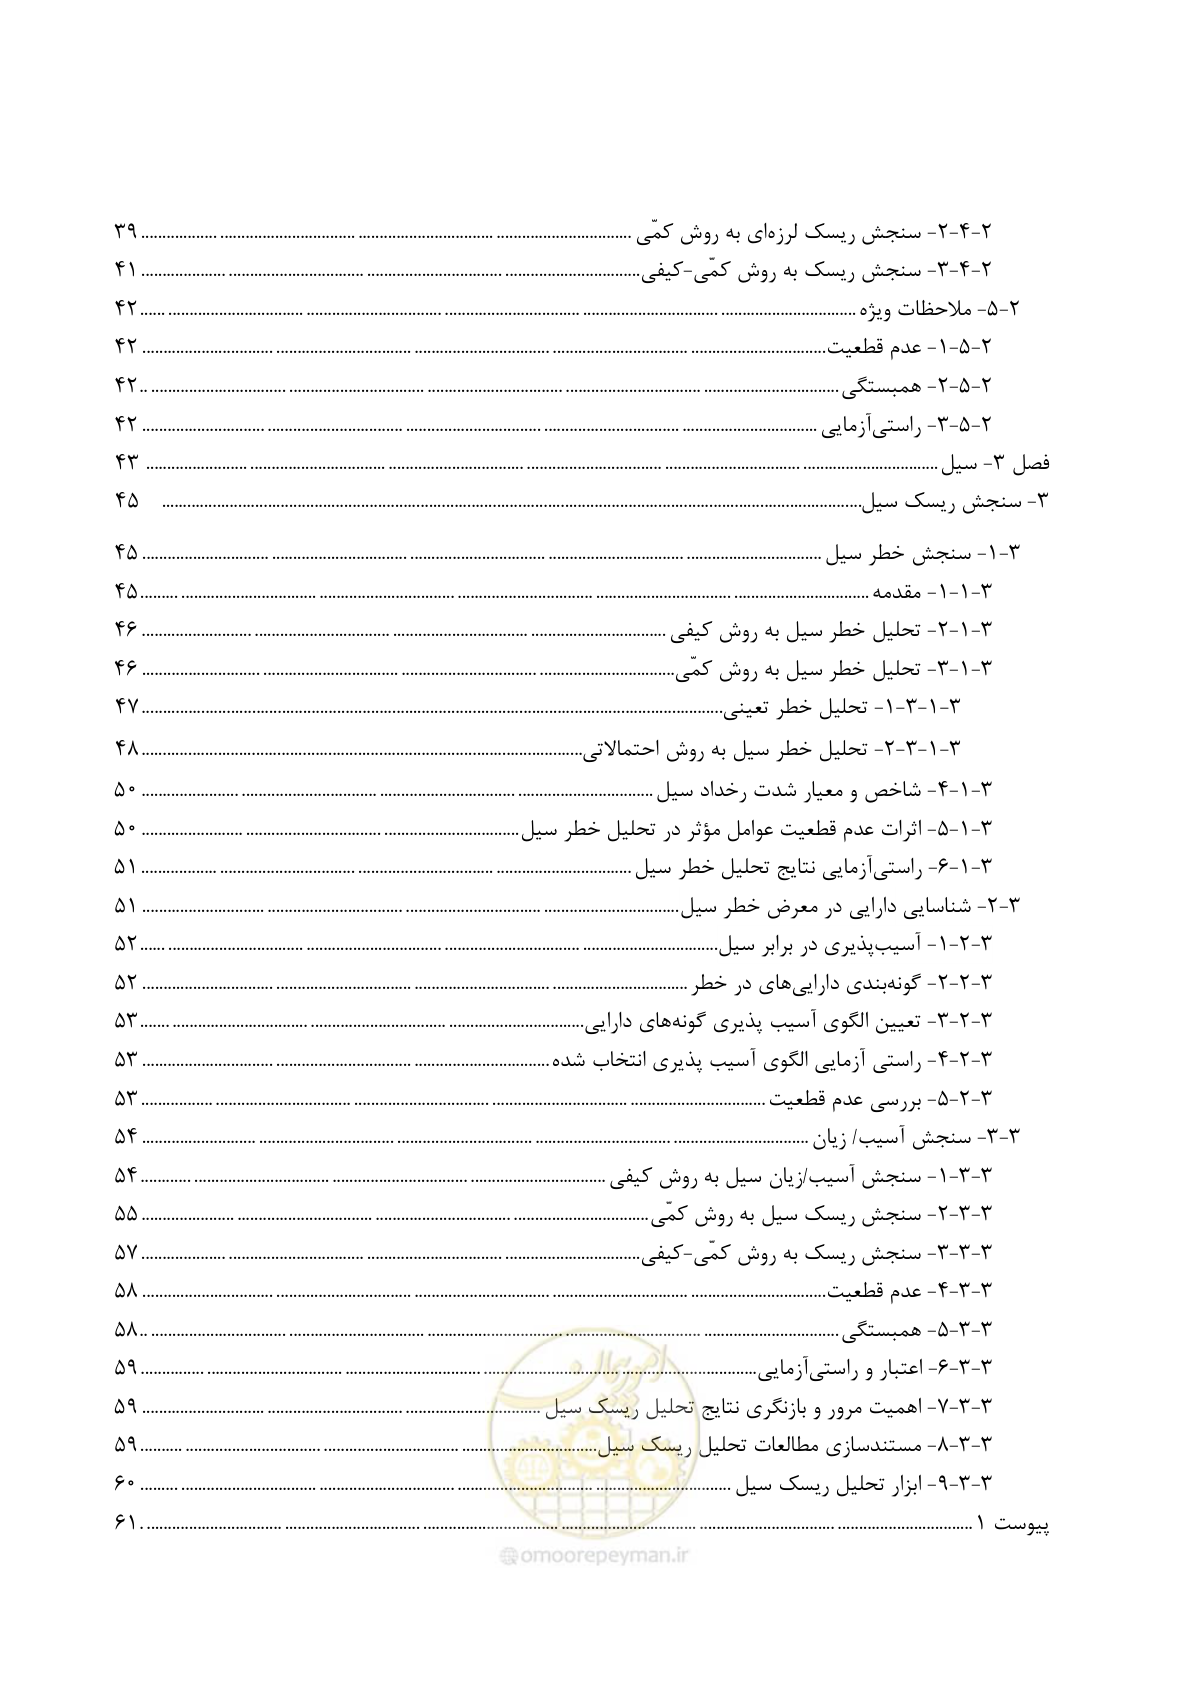 ۲-۴-۲- سنجش ریسک لرزه‌ای به روش کمّی ........ ۳۹
۲-۴-۳- سنجش ریسک به روش کمّی-کیفی ........ ۴۱
۲-۵- ملاحظات ویژه ........ ۴۲
۲-۵-۱- عدم قطعیت ........ ۴۲
۲-۵-۲- همبستگی ........ ۴۲
۲-۵-۳- راستی‌آزمایی ........ ۴۲
فصل ۳- سیل ........ ۴۳
۳- سنجش ریسک سیل ........ ۴۵
۳-۱- سنجش خطر سیل ........ ۴۵
۳-۱-۱- مقدمه ........ ۴۵
۳-۱-۲- تحلیل خطر سیل به روش کیفی ........ ۴۶
۳-۱-۳- تحلیل خطر سیل به روش کمّی ........ ۴۶
۳-۱-۳-۱- تحلیل خطر تعینی ........ ۴۷
۳-۱-۳-۲- تحلیل خطر سیل به روش احتمالاتی ........ ۴۸
۳-۱-۴- شاخص و معیار شدت رخداد سیل ........ ۵۰
۳-۱-۵- اثرات عدم قطعیت عوامل مؤثر در تحلیل خطر سیل ........ ۵۰
۳-۱-۶- راستی‌آزمایی نتایج تحلیل خطر سیل ........ ۵۱
۳-۲- شناسایی دارایی در معرض خطر سیل ........ ۵۱
۳-۲-۱- آسیب‌پذیری در برابر سیل ........ ۵۲
۳-۲-۲- گونه‌بندی دارایی‌های در خطر ........ ۵۲
۳-۲-۳- تعیین الگوی آسیب پذیری گونه‌های دارایی ........ ۵۳
۳-۲-۴- راستی آزمایی الگوی آسیب پذیری انتخاب شده ........ ۵۳
۳-۲-۵- بررسی عدم قطعیت ........ ۵۳
۳-۳- سنجش آسیب/ زیان ........ ۵۴
۳-۳-۱- سنجش آسیب/زیان سیل به روش کیفی ........ ۵۴
۳-۳-۲- سنجش ریسک سیل به روش کمّی ........ ۵۵
۳-۳-۳- سنجش ریسک به روش کمّی-کیفی ........ ۵۷
۳-۳-۴- عدم قطعیت ........ ۵۸
۳-۳-۵- همبستگی ........ ۵۸
۳-۳-۶- اعتبار و راستی‌آزمایی ........ ۵۹
۳-۳-۷- اهمیت مرور و بازنگری نتایج تحلیل ریسک سیل ........ ۵۹
۳-۳-۸- مستندسازی مطالعات تحلیل ریسک سیل ........ ۵۹
۳-۳-۹- ابزار تحلیل ریسک سیل ........ ۶۰
پیوست ۱ ........ ۶۱
امور پیمان
@omoorepeyman.ir